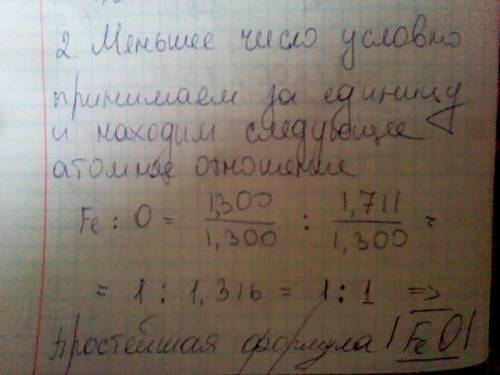 2 Меньшее число условно
принимаем за единицу
и находим следующее
атомное отношение
Fe : O = 1,300/1,300 : 1,711/1,300 =
= 1 : 1,316 = 1 : 1 =>
простейшая формула |FeO|